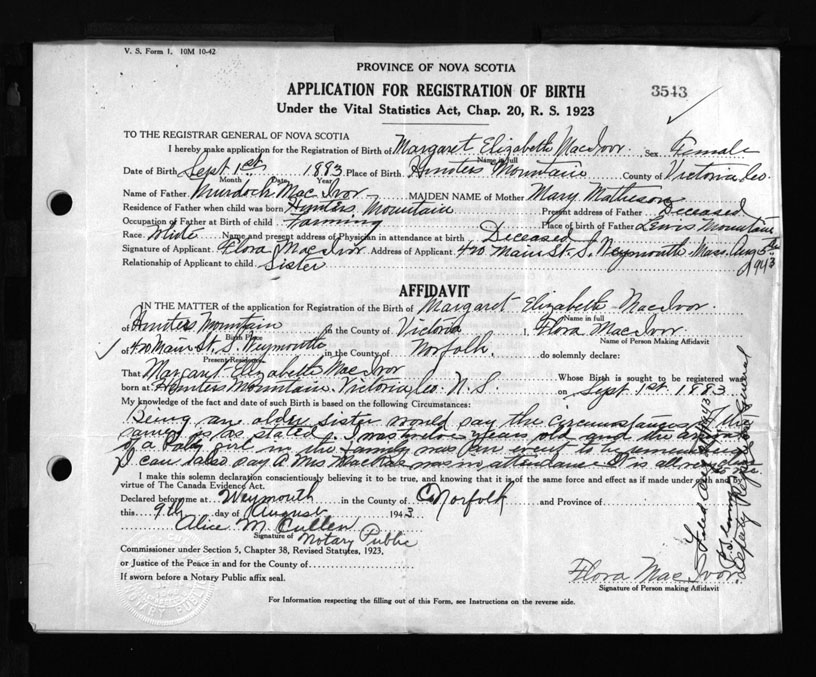 V. S. Form 1. 10M 10-42
PROVINCE OF NOVA SCOTIA
APPLICATION FOR REGISTRATION OF BIRTH
3543
Under the Vital Statistics Act, Chap. 20, R. S. 1923
TO THE REGISTRAR GENERAL OF NOVA SCOTIA
I hereby make application for the Registration of Birth of Margaret Elizabeth MacIvor. Sex Female
Name in full
Date of Birth Sept 1st 1883. Place of Birth Hunters Mountain County of Victoria Co.
Month Date Year
Name of Father Murdoch MacIvor MAIDEN NAME of Mother Mary Matheson
Residence of Father when child was born Hunters Mountain Present address of Father Deceased
Occupation of Father at Birth of child Farming Place of birth of Father Lewis Mountain
Race White Name and present address of Physician in attendance at birth Deceased
Signature of Applicant Flora MacIvor Address of Applicant 420 Main St. S. Weymouth Mass. Aug 5th 1943
Relationship of Applicant to child Sister
AFFIDAVIT
IN THE MATTER of the application for Registration of the Birth of Margaret Elizabeth MacIvor.
Name in full
of Hunters Mountain in the County of Victoria I, Flora MacIvor
Birth Place Name of Person Making Affidavit
of 420 Main St, S. Weymouth in the County of Norfolk. do solemnly declare:
Present Residence
That Margaret Elizabeth MacIvor Whose Birth is sought to be registered was
born at Hunters Mountain. Victoria Co. N.S. on Sept 1st 1883
My knowledge of the fact and date of such Birth is based on the following Circumstances:
Being an older sister would say the circumstances of the
same is as stated. I was years old and the
of a baby girl in the family was an event to be remembered
I can also say a Mrs MacRae was in attendance. It is all
I make this solemn declaration conscientiously believing it to be true, and knowing that it is of the same force and effect as if made under oath and by
virtue of The Canada Evidence Act.
Declared before me at Weymouth in the County of Norfolk and Province of
this 9th day of August 1943.
Alice M. Cullen
Signature of Notary Public
Commissioner under Section 5, Chapter 38, Revised Statutes, 1923,
or Justice of the Peace in and for the County of
If sworn before a Notary Public affix seal.
Flora MacIvor.
Signature of Person making Affidavit
For Information respecting the filling out of this Form, see Instructions on the reverse side.
Filed Aug 1943
Deputy Registrar General
NOTARY PUBLIC